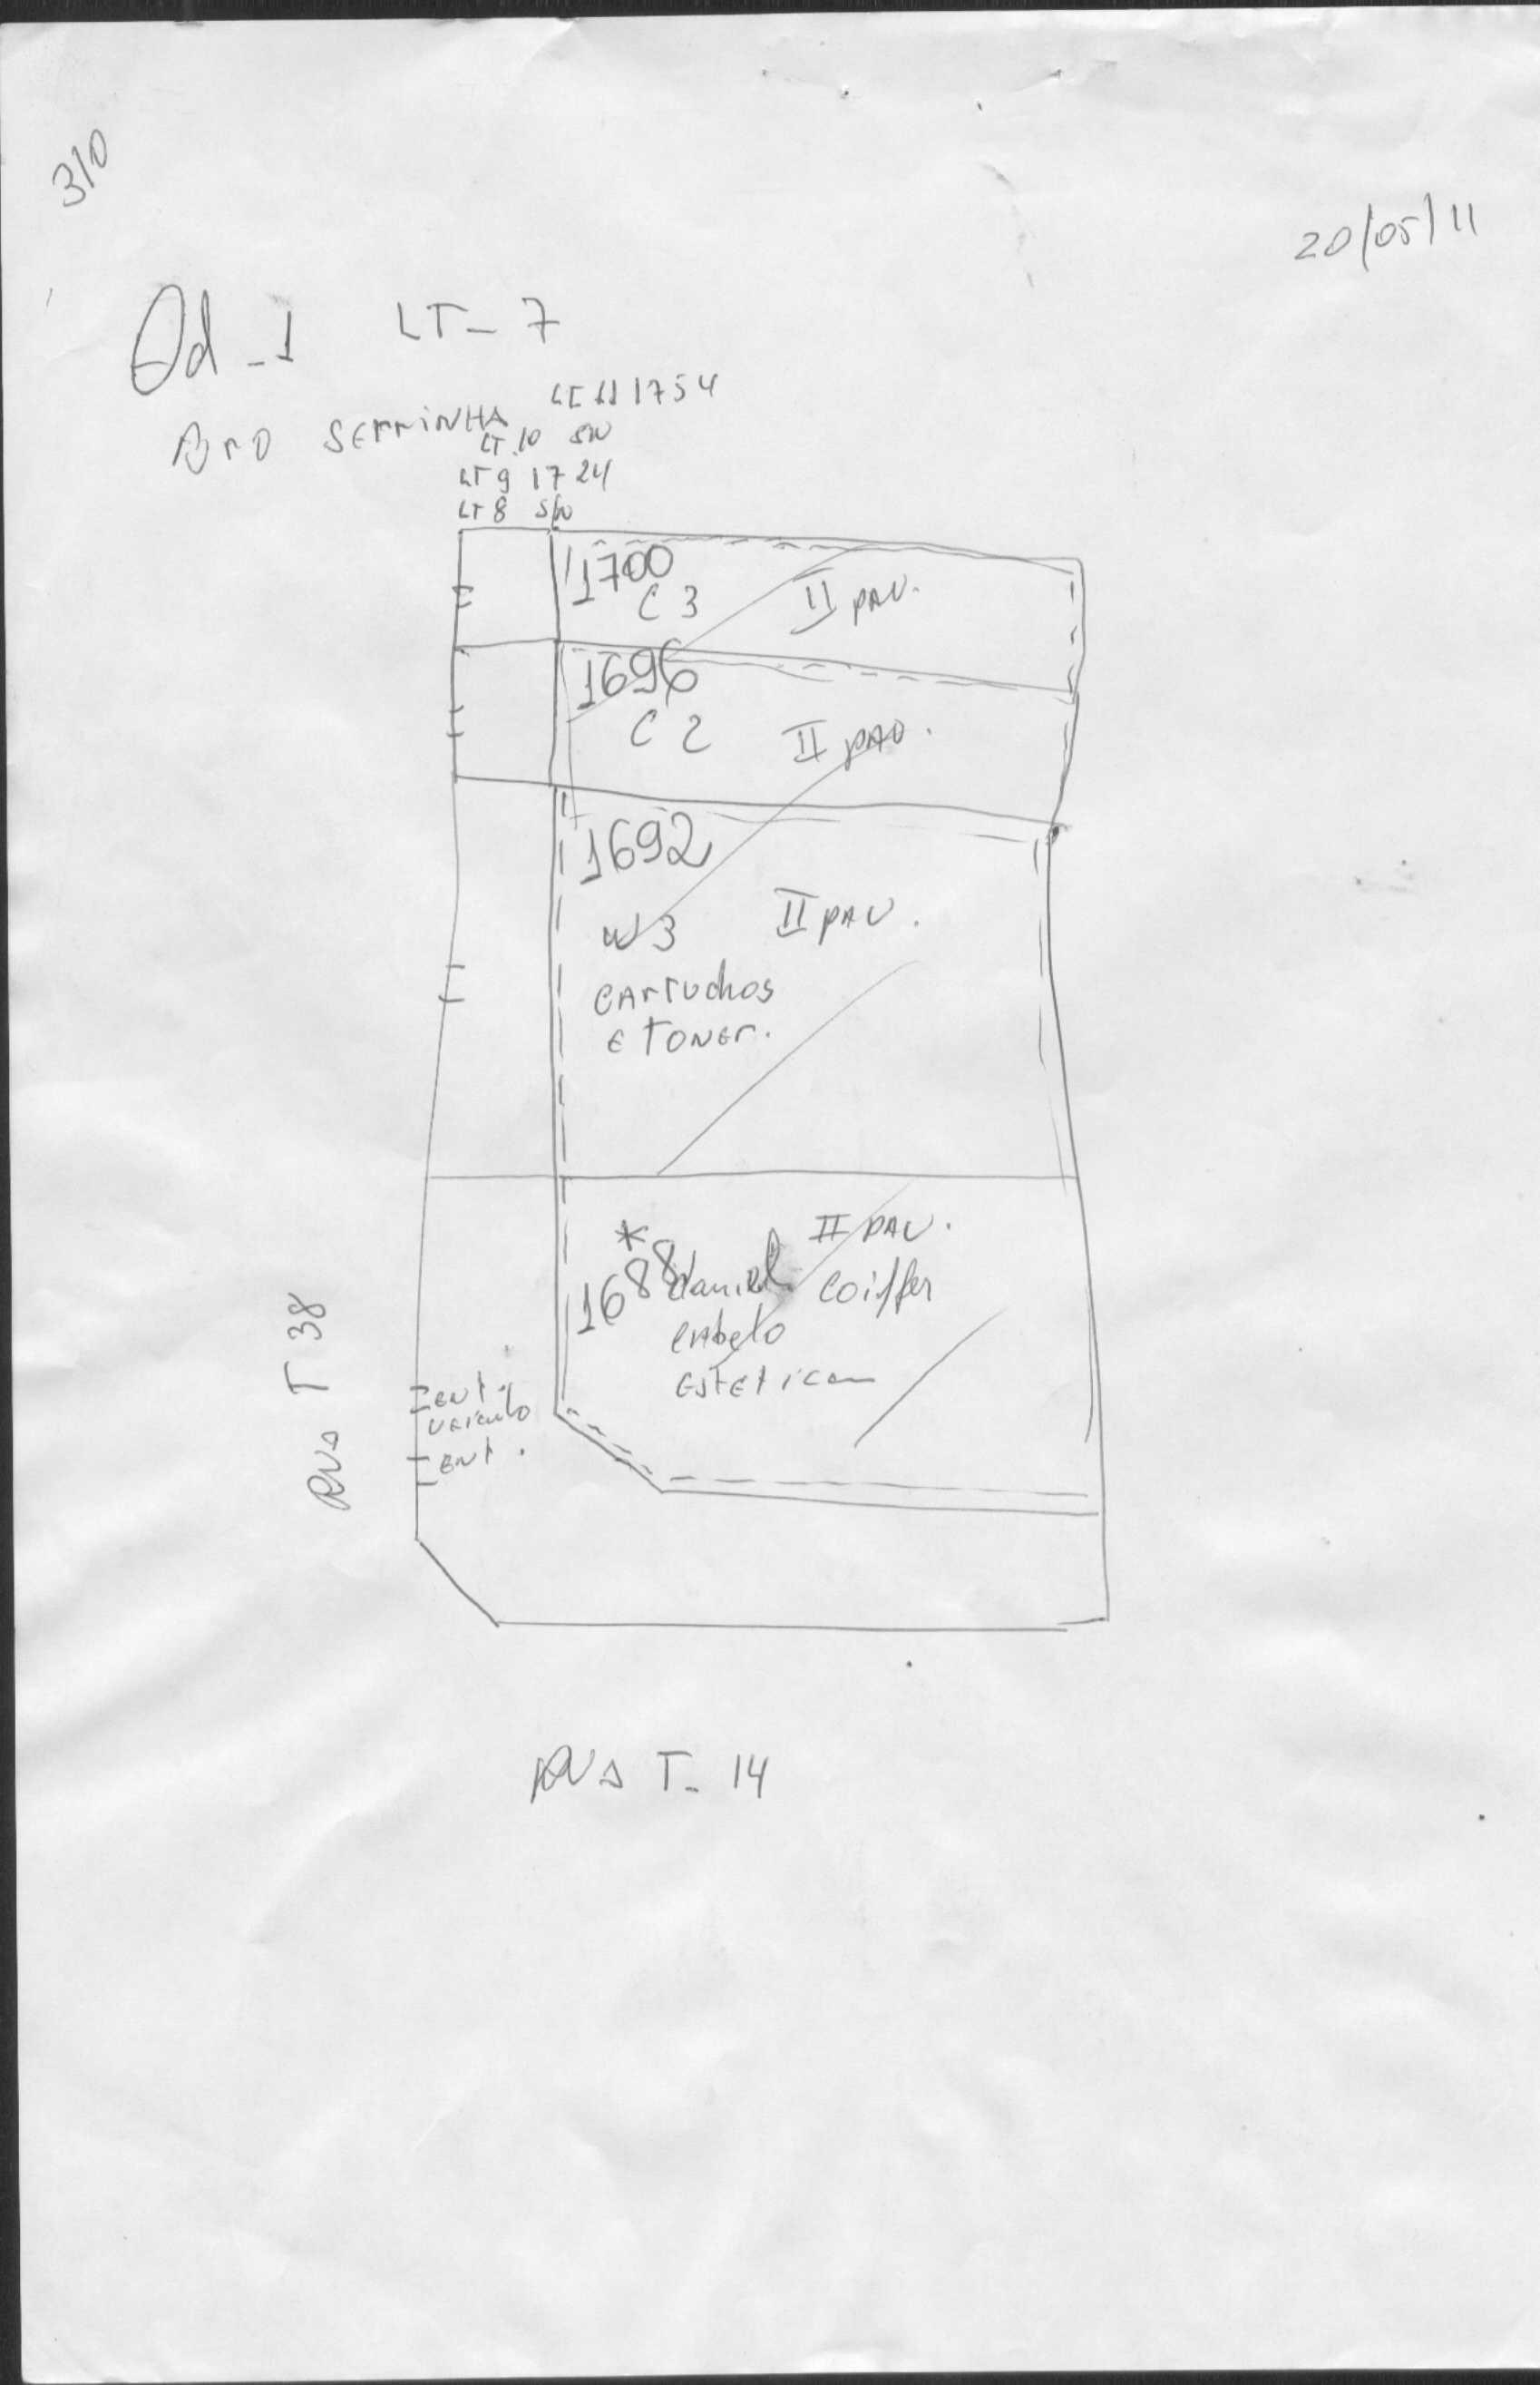 310
20/05/11
Qd_1 LT_7
Bro SErrinHA
LT 11 1754
LT.10 S/N
LT 9 1724
LT 8 S/N
1700
C 3 II pAv.
1696
C 2 II pAv.
1692
W3 II pAv.
CArtuchos
E TONEr.
* II pAv.
1688 daniel Coiffer
CAbelo
EstEticA
RUA T 38
ENt.
vEiculo
ENt.
RUA T_ 14